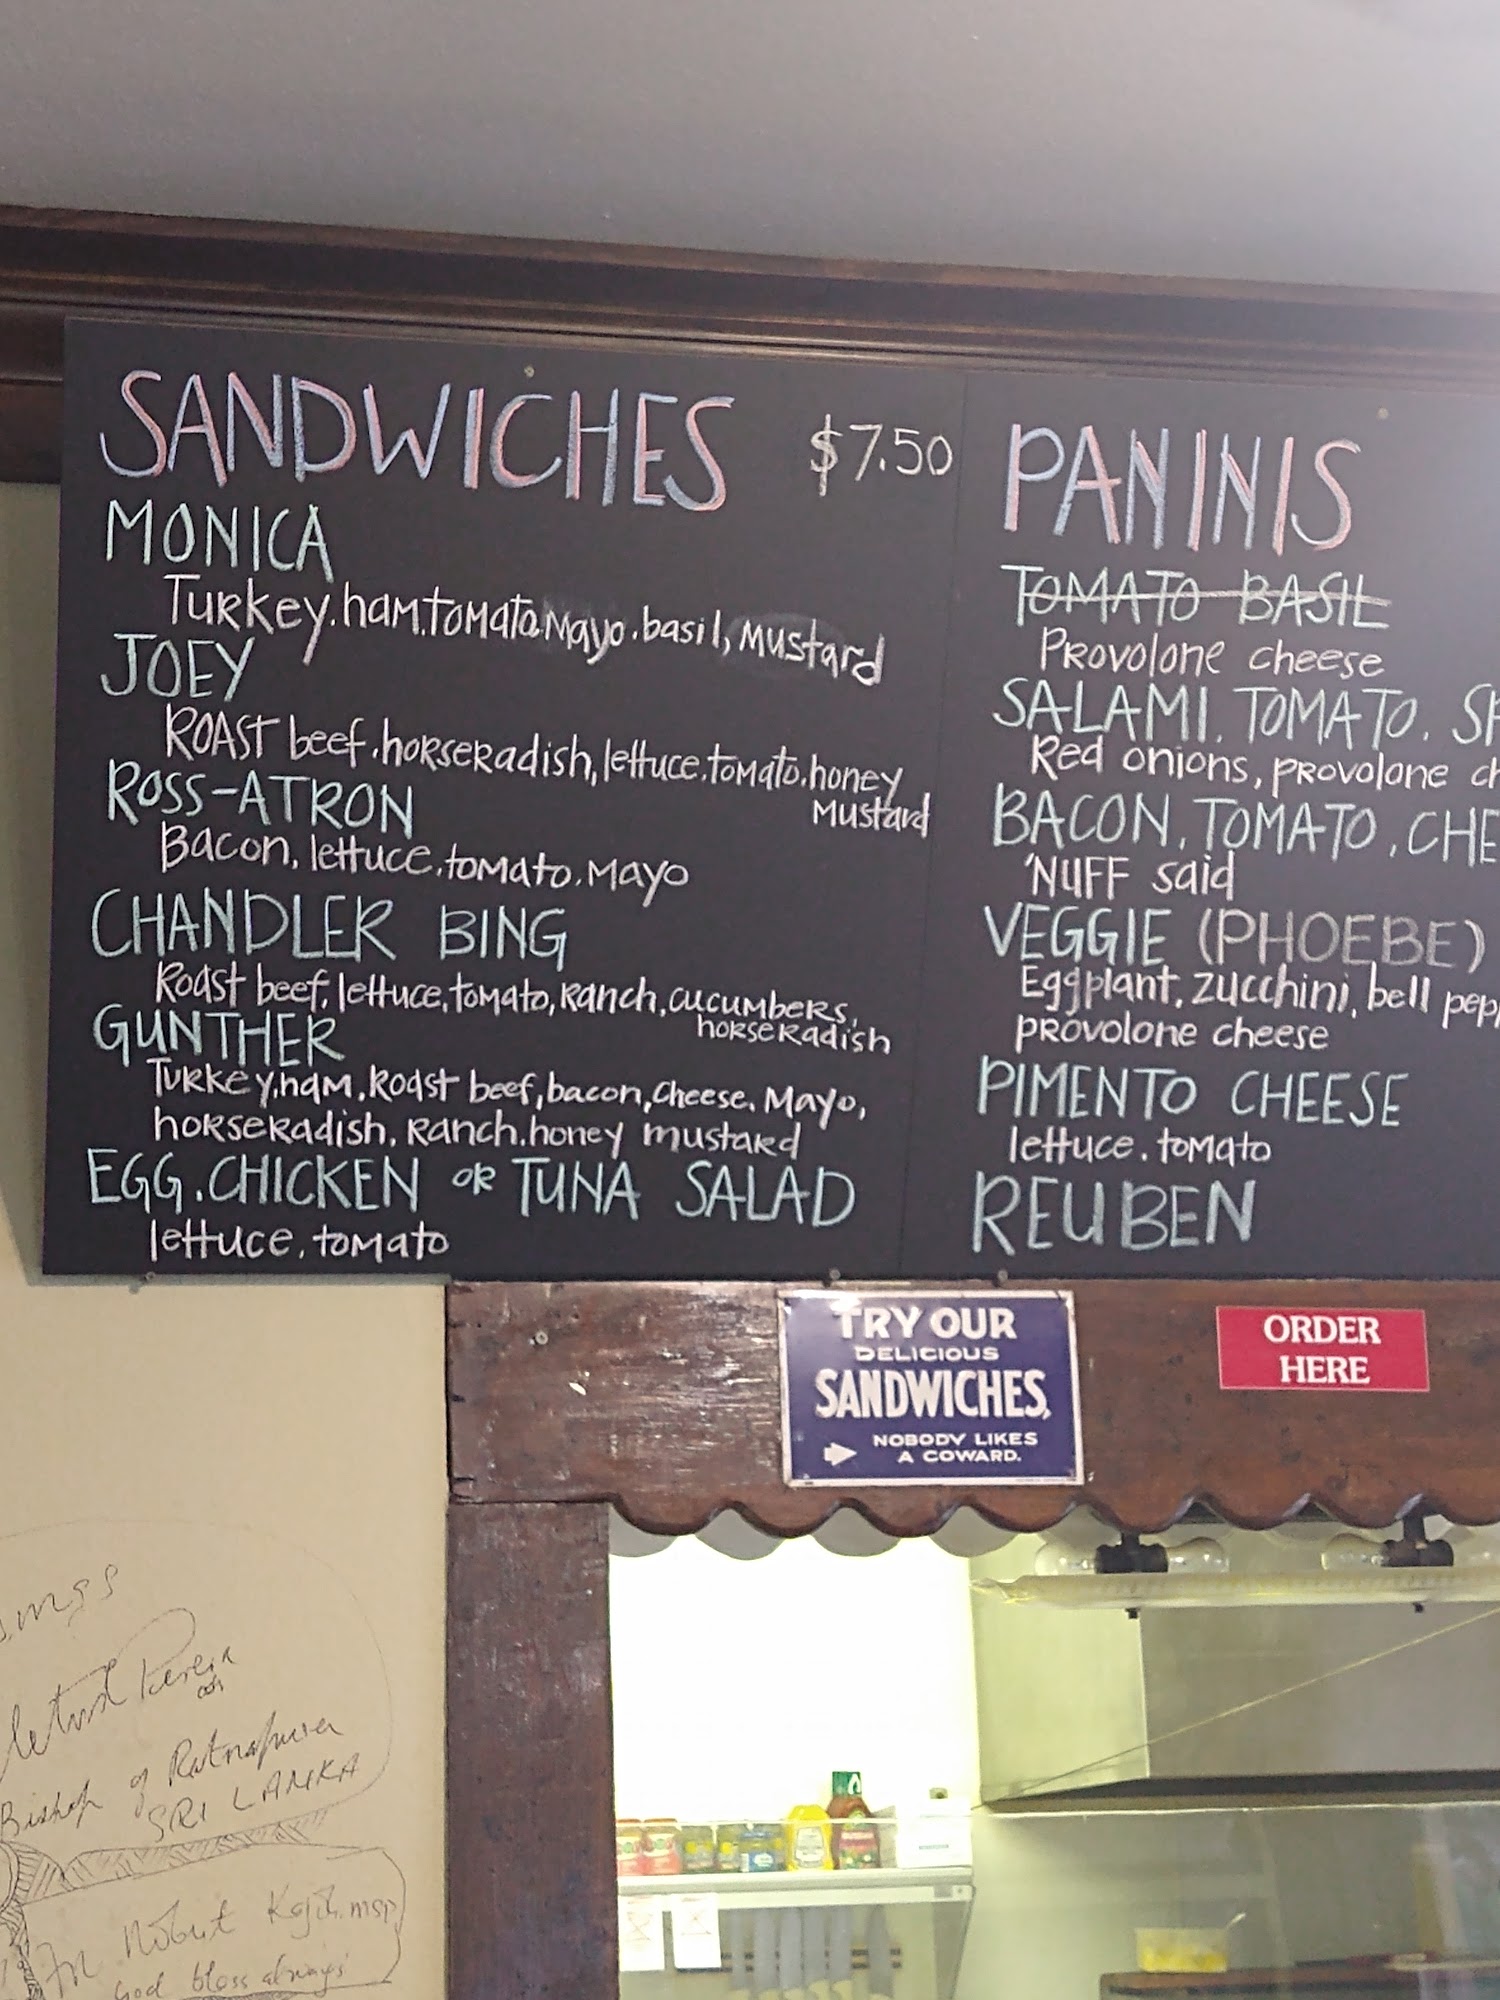 SANDWICHES $7.50
MONICA
Turkey. ham. tomato. Mayo. basil, mustard
JOEY
ROAST beef. horseradish, lettuce. tomato. honey
mustard
ROSS-ATRON
Bacon, lettuce. tomato. Mayo
CHANDLER BING
Roast beef, lettuce, tomato, Ranch, cucumbers,
horseradish
GUNTHER
Turkey, ham, Roast beef, bacon, cheese, Mayo,
horseradish, Ranch. honey mustard
EGG, CHICKEN OR TUNA SALAD
lettuce, tomato
PANINIS
TOMATO BASIL
Provolone cheese
SALAMI, TOMATO, SP
Red onions, provolone ch
BACON, TOMATO, CHE
'NUFF said
VEGGIE (PHOEBE)
Eggplant, zucchini, bell pep
provolone cheese
PIMENTO CHEESE
lettuce. tomato
REUBEN
TRY OUR
DELICIOUS
SANDWICHES,
NOBODY LIKES
A COWARD.
ORDER
HERE
Bishop of Ratnapura
SRI LANKA
God bless always